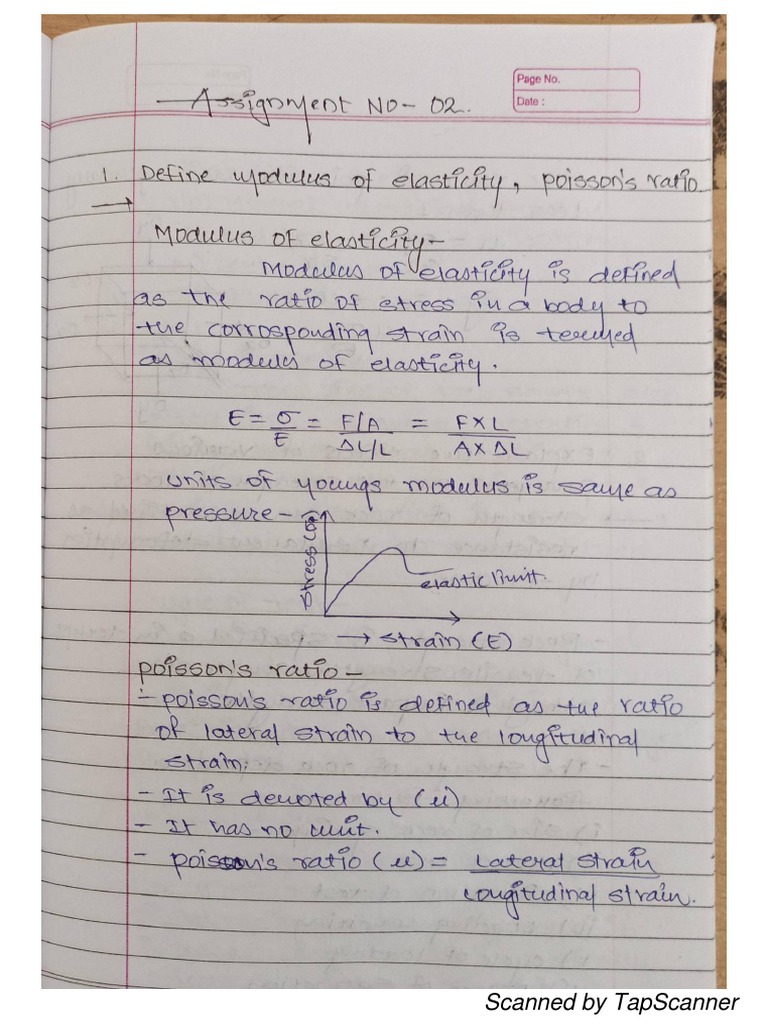 Page No.
Date :
Assignment No- 02.
1. Define modulus of elasticity, poisson's ratio
→
Modulus of elasticity-
Modulus of elasticity is defined
as the ratio of stress in a body to
the corrosponding strain is termed
as modulus of elasticity.
E = σ/E = F/A / ΔL/L = F×L / A×ΔL
units of youngs modulus is same as
pressure-
Stress (σ)
elastic limit.
→ strain (E)
poisson's ratio -
- poisson's ratio is defined as the ratio
of lateral strain to the longitudinal
strain.
- It is denoted by (μ)
- It has no unit.
- poisson's ratio (μ) = Lateral strain / longitudinal strain.
Scanned by TapScanner